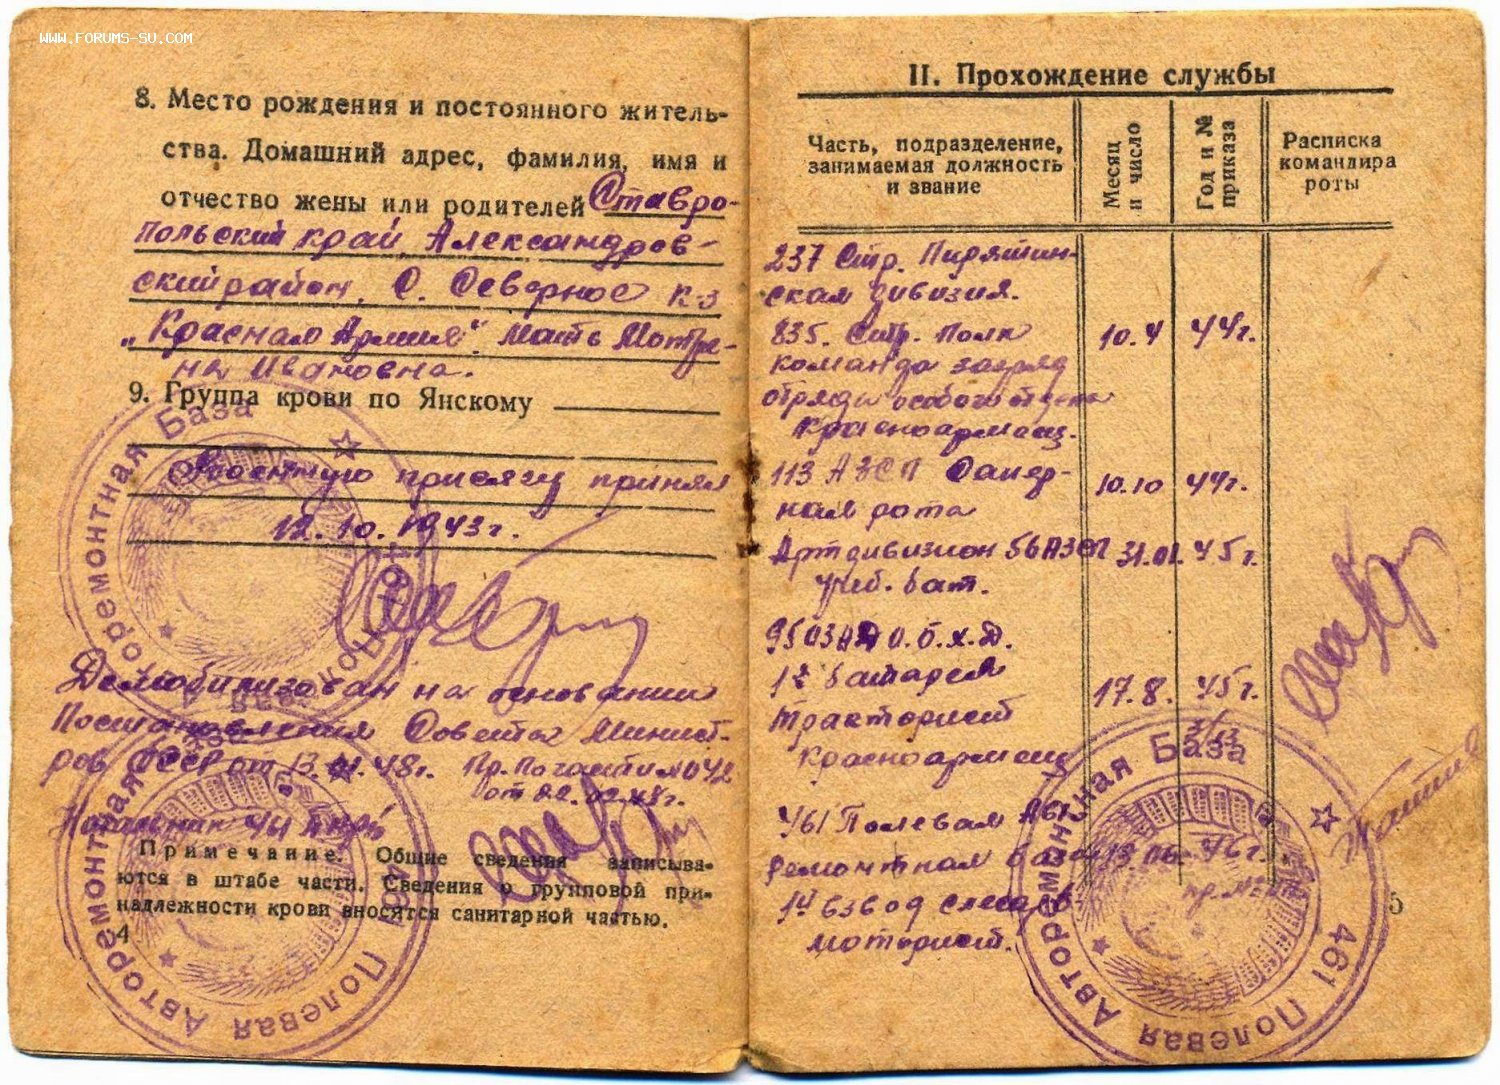 www.forums-su.com
8. Место рождения и постоянного житель-
ства. Домашний адрес, фамилия, имя и
отчество жены или родителей Ставро-
польский край, Александров-
ский район. С. Северное к-з
„Красная Армия". Мать Матре-
на Ивановна.
9. Группа крови по Янскому
Военную присягу принял
12.10.1943г.
Демобилизован на основании
Постановления Совета Минист-
ров СССР от 13.01.48г. Пр. По части №042
от 22.02.48г.
Начальник
Примечание. Общие сведения записыва-
ются в штабе части. Сведения о групповой при-
надлежности крови вносятся санитарной частью.
4
461 Полевая Авторемонтная База
461 Полевая Авторемонтная База
II. Прохождение службы
Часть, подразделение,
занимаемая должность
и звание
Месяц
и число
Год и №
приказа
Расписка
командира
роты
237 Стр. Пирятин-
ская дивизия.
835. Стр. Полк 10.4 44г.
команда загряд
отряда особого отдела
Красноармеец.
113 АЗСП Санер-
ная рота 10.10 44г.
Артдивизион 56 АЗСП 31.01. 45г.
учеб. бат.
950 О.Б.Х.Д.
1я батарея 17.8. 45г.
тракторист
красноармеец
461 Полевая Авто
ремонтная база 13.06. 46г.
1й взвод слесарь-
моторист.
461 Полевая Авторемонтная База
5